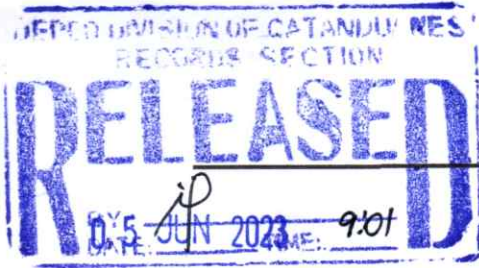 DEPED DIVISION OF CATANDUANES
RECORDS SECTION
RELEASED
BY:
DATE: 05 JUN 2023 TIME: 9:01